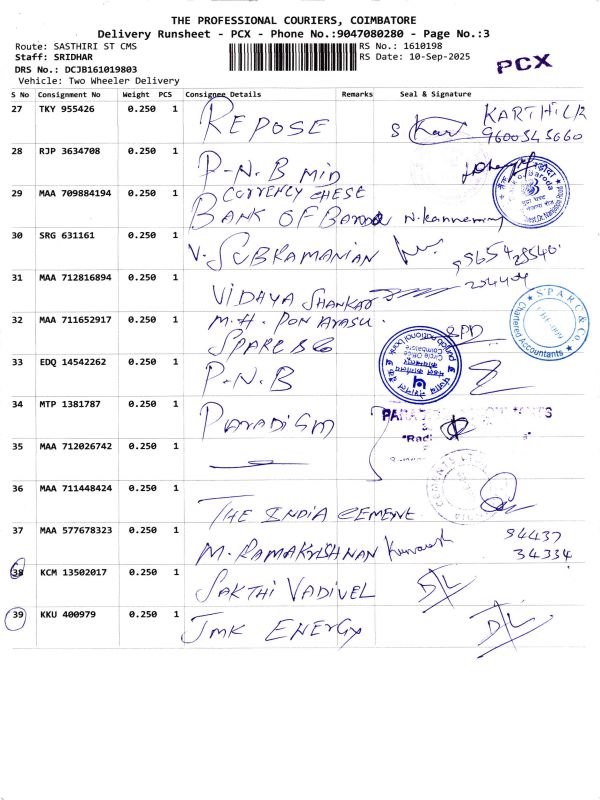 THE PROFESSIONAL COURIERS, COIMBATORE
Delivery Runsheet - PCX - Phone No.:9047080280 - Page No.:3
Route: SASTHIRI ST CMS
RS No.: 1610198
Staff: SRIDHAR
RS Date: 10-Sep-2025
PCX
DRS No.: DCJB161019803
Vehicle: Two Wheeler Delivery
S No Consignment No Weight PCS Consignee Details Remarks Seal & Signature
27 TKY 955426 0.250 1 REPOSE KARTHICK
9600545660
28 RJP 3634708 0.250 1 P-N.B MID
29 MAA 709884194 0.250 1 CURRENCY CHEST
BANK OF Baroda
30 SRG 631161 0.250 1 V. SUBRAMANIAN
31 MAA 712816894 0.250 1 VIDHYA SHANKAR
32 MAA 711652917 0.250 1 M.H. PON Arasu.
SPARC & Co
SPARC & CO.
Chartered Accountants
33 EDQ 14542262 0.250 1 P-N.B
punjab national bank
Circle Office
Coimbatore
34 MTP 1381787 0.250 1 ParadiGm
35 MAA 712026742 0.250 1
36 MAA 711448424 0.250 1 THE INDIA CEMENT
37 MAA 577678323 0.250 1 M. RAMAKRISHNAN 94437
34334
38 KCM 13502017 0.250 1 SAKTHI VADIVEL D/L
39 KKU 400979 0.250 1 JMK ENERGY D/L